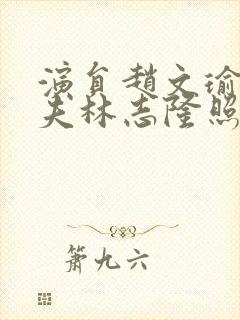 演員趙文瑜
夫林志隆照
簫九六